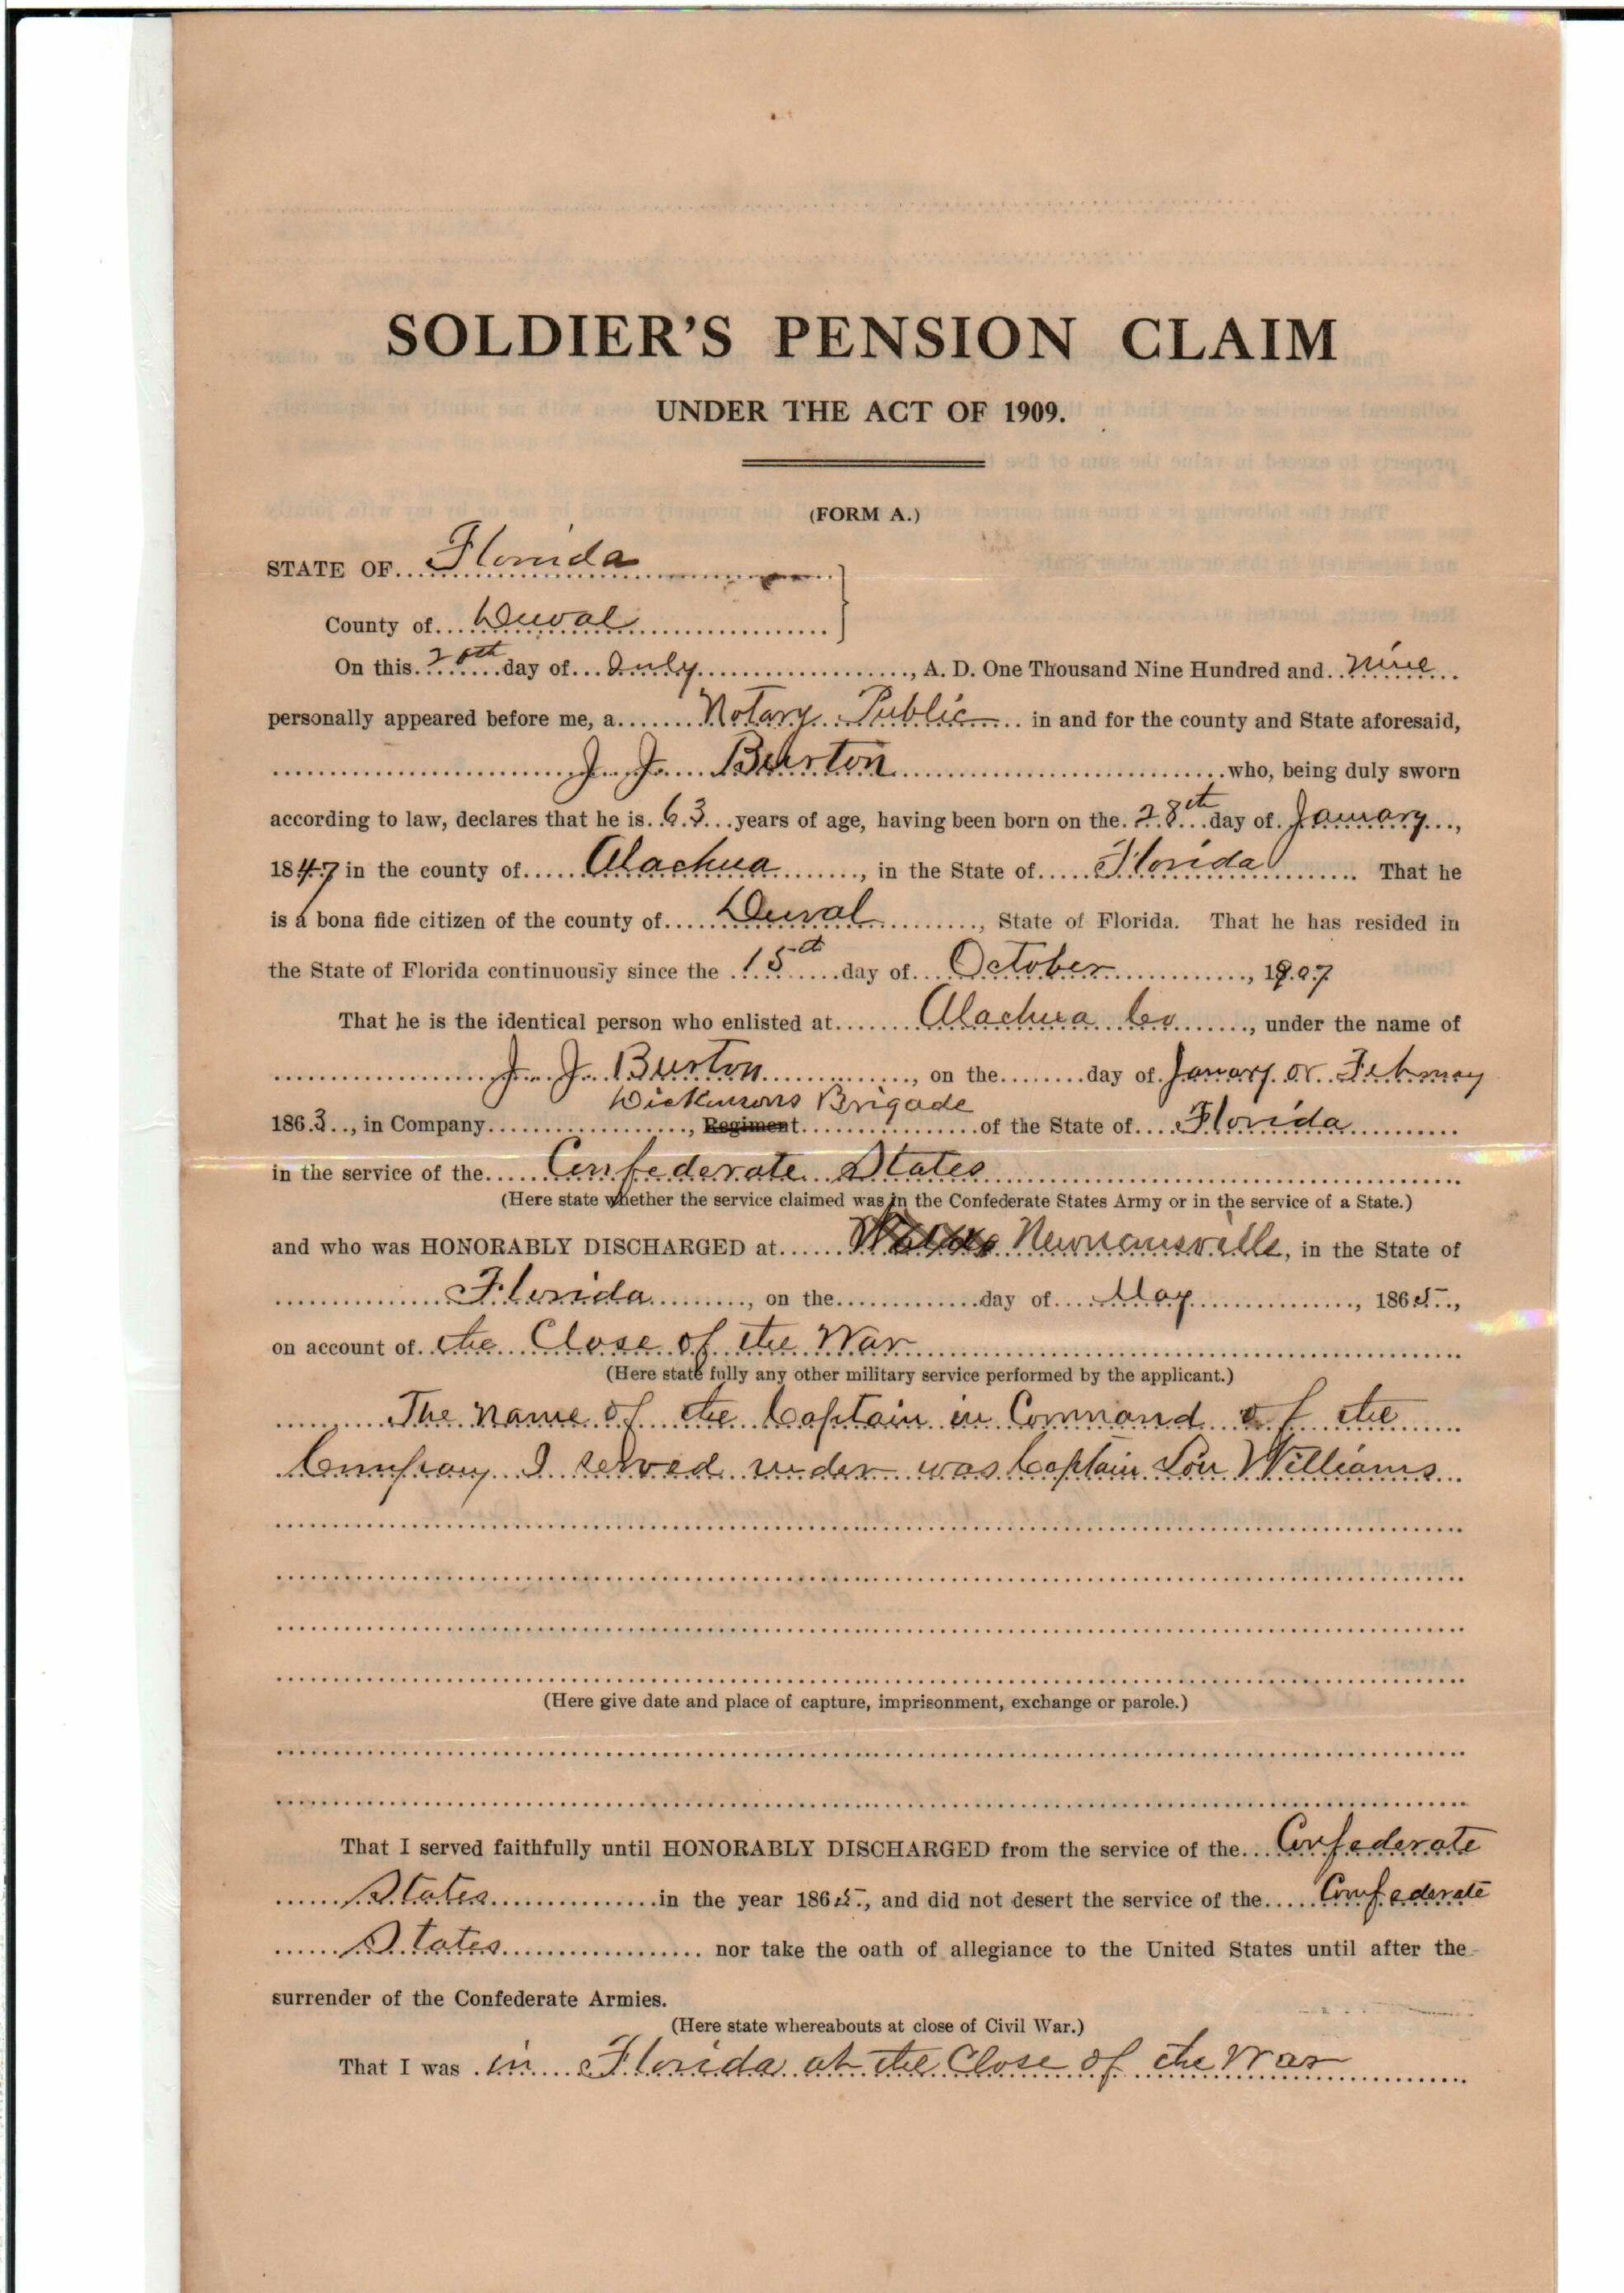 SOLDIER'S PENSION CLAIM
UNDER THE ACT OF 1909.
(FORM A.)
STATE OF Florida
County of Duval
On this 20th day of July, A. D. One Thousand Nine Hundred and nine
personally appeared before me, a Notary Public in and for the county and State aforesaid,
J. J. Burston who, being duly sworn
according to law, declares that he is 63 years of age, having been born on the 28th day of January,
1847 in the county of Alachua, in the State of Florida That he
is a bona fide citizen of the county of Duval, State of Florida. That he has resided in
the State of Florida continuously since the 15th day of October, 1907
That he is the identical person who enlisted at Alachua Co, under the name of
J. J. Burston, on the day of January or February
Dickinsons Brigade
1863, in Company, Regiment of the State of Florida
in the service of the Confederate States
(Here state whether the service claimed was in the Confederate States Army or in the service of a State.)
and who was HONORABLY DISCHARGED at Newnansville, in the State of
Florida, on the day of May, 1865,
on account of the Close of the War
(Here state fully any other military service performed by the applicant.)
The name of the Captain in Command of the
Company I served under was Captain Lou Williams
(Here give date and place of capture, imprisonment, exchange or parole.)
That I served faithfully until HONORABLY DISCHARGED from the service of the Confederate
States in the year 1865, and did not desert the service of the Confederate
States nor take the oath of allegiance to the United States until after the
surrender of the Confederate Armies.
(Here state whereabouts at close of Civil War.)
That I was in Florida at the Close of the War